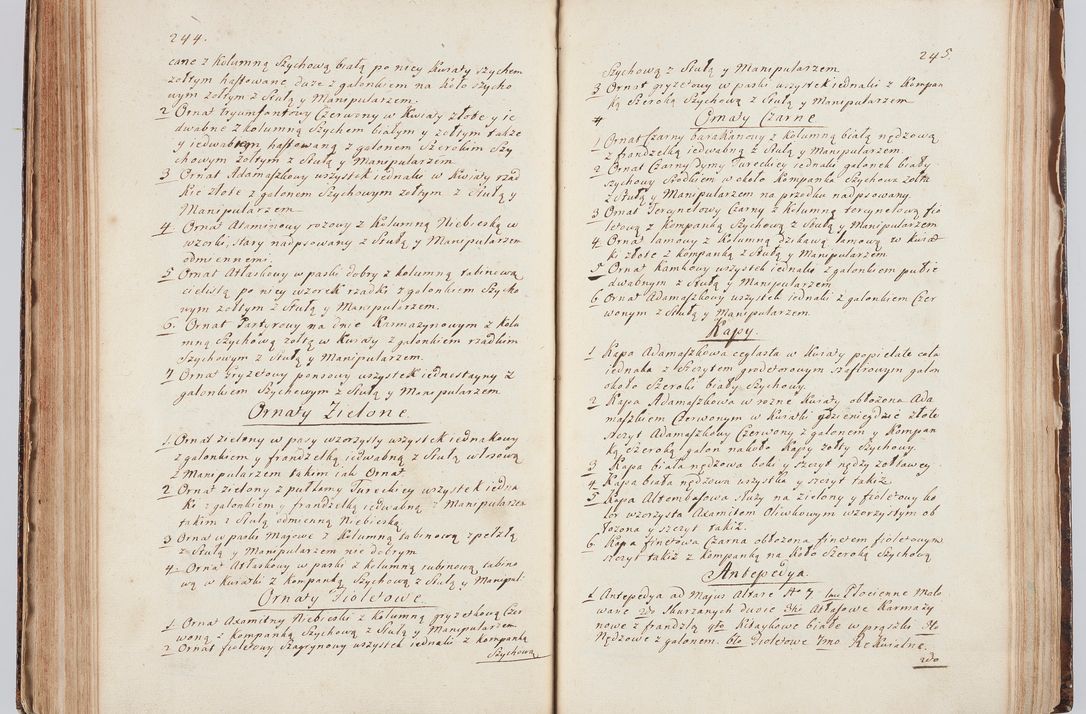 244.
cane z Kolumną Szychową białą po niey Kwiaty szychem
żołtym haftowane duże z galonkiem na koło szycho
wym zołtym z Stułą y Manipularzem.
2 Ornat tryumfantowy Czerwony w Kwiaty złote y ie
dwabne z kolumną Szychem białym y żołtym także
y iedwabiem haftowaną z galonem Szerokim Szy
chowym żołtym z Stułą y Manipularzem
3 Ornat Adamaszkowy wszystek iednaki w Kwiaty rzad
kie złote z galonem Szychowym żołtym z Stułą y
Manipularzem
4. Ornat Ataminowy rozowy z Kolumną Niebieską w
wzorki, stary nadpsowany z Stułą y Manipularzem
odmiennemi.
5 Ornat Atłaskowy w paski dobry z kolumną tabinową
cielistą po niey wzorek rzadki z galonkiem Szycho
wym żołtym z Stułą, y Manipularzem.
6. Ornat Partyrowy na dnie Karmazynowym z Kolu
mną Szychową żołtą w Kwiaty z galonkiem rzadkim
Szychowym z Stułą y Manipularzem.
7 Ornat Gryzetowy ponsowy wszystek iednostayny z
galonkiem Szychowym z Stułą y Manipularzem
Ornaty Zielone.
1. Ornat zielony w pasy wzorzysty wszystek iednakowy
z galonkiem y frandzelką iedwabną z Stułą włosową
z Manipularzem takim iak Ornat
2 Ornat zielony z pułtamy Tureckiey wszystek iedna
ki z galonkiem y frandzelką iedwabną z Manipularzem
takim z Stułą odmienną Niebieską
3 Ornat w paski Majowe z Kolumną tabinową spełzłą
z Stułą y Manipularzem nie dobrym
4. Ornat Atłaskowy w paski z kolumną rubinową tabino
wą w Kwiatki z Kompanką Szychową z Stułą y Manipul:
Ornaty Fioletowe.
1 Ornat Axamitny Niebieski z Kolumną gryzetkową Czer
woną z Kompanką Szychową z Stułą y Manipularzem
2 Ornat fioletowy Szagrynowy wszystek iednaki z Kompanką
Szychową
245.
Szychową z Stułą y Manipularzem
3 Ornat gryzetowy w paski wszystek iednaki z Kompan
ką Szeroką Szychową z Stułą y Manipularzem
4 Ornaty Czarne
1 Ornat Czarny barakanowy z kolumną białą nędzową
z frandzelką iedwabną z Stułą y Manipularzem.
2 Ornat Czarny Dymy Tureckiey iednaki galonek biały
szychowy Srodkiem w około Kompanka Szychowa żołta
z Stułą y Manipularzem na przedku nadpsowany.
3 Ornat Tercynelowy Czarny z Kolumną tercynelową fio
letową z Kompanką Szychową z Stułą y Manipularzem
4 Ornat lamowy z Kolumną dzikawą lamową w kwiat
ki złote z kompanką z Stułą y Manipularzem
5 Ornat Kamkowy wszystek iednaki z galonkiem pułie
dwabnym z Stułą y Manipularzem
6 Ornat Adamaszkowy wszystek iednaki z galonkiem Czer
wonym z Stułą y Manipularzem
Kapy.
1 Kapa Adamaszkowa ceglasta w Kwiaty popielate cała
iednaka z Szczytem grodetorowym Szafirowym galon
około Szeroki biały Szychowy.
2 Kapa Adamaszkowa w rożne Kwiaty obłożona Ada
maszkiem Czerwonym w Kwiatki gdzieniegdzie złote
szczyt Adamaszkowy Czerwony z galonem y Kompan
ką Szeroką galon nakoło Kapy żołty Szychowy.
3 Kapa biała nędzowa boki y szczyt nędzy żołtawey.
4. Kapa biała nędzowa wszystka y szczyt takiż.
5 Kapa Altembasowa służy na zielony y fioletowy ko
lor wzorzysta Axamitem Oliwkowym wzorzystym ob
łożona y szczyt takiż.
6. Kapa finetowa Czarna obłożona finetem fioletowym
szczyt takiż z Kompanką na Koło Szeroką Szychową
Antepedya.
1 Antepedya ad Majus Altare No 7 1mo Płocienne Malo
wane 2do Skurzanych dwoie 3tio Atłasowe Karmazy
nowe z frandzlą 4to Kitaykowe białe w prążki 5to
Nędzowe z galonem. 6to Fioletowe 7mo Rekwialne.
2do